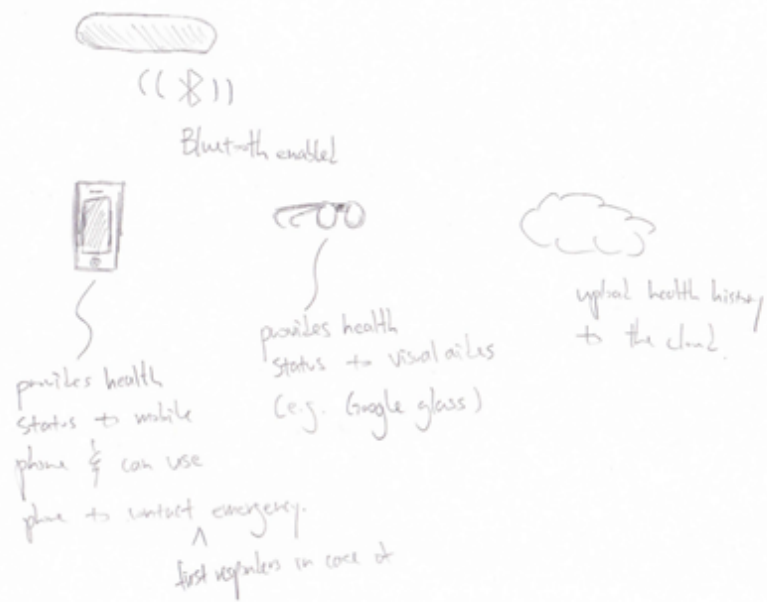 Bluetooth enabled
provides health
status to mobile
phone & can use
phone to contact emergency.
^
first responders in case of
provides health
status to visual aides
(e.g. Google glass)
upload health history
to the cloud.